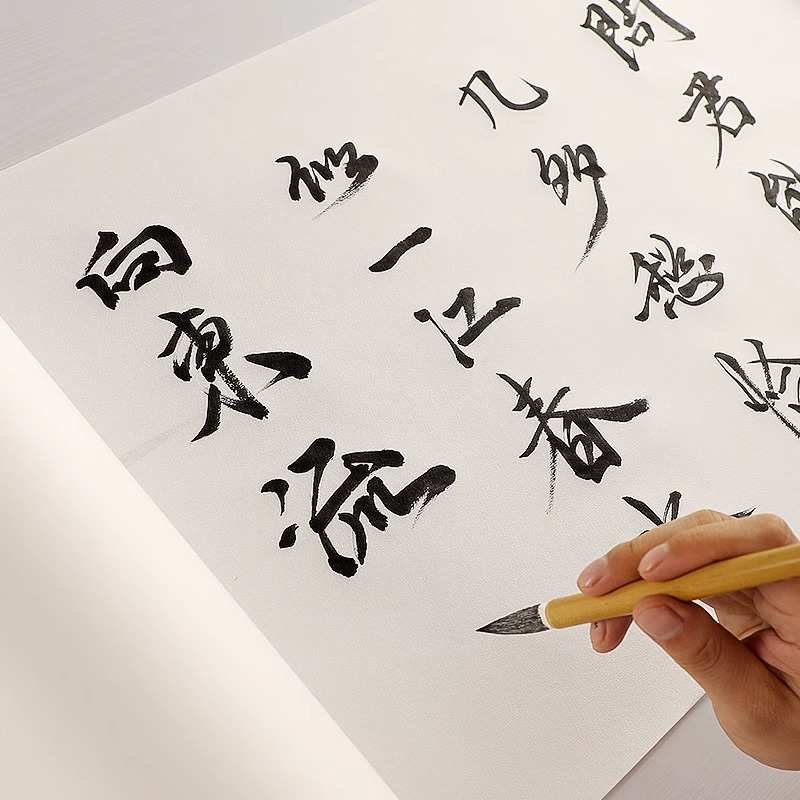 問君
几多愁恰
似一江春
向東流